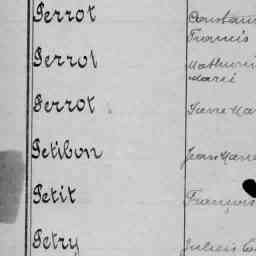 Perrot Constan
Francis
Perrot Mathurin
Marie
Perrot Pierre Ma
Petibon Jean Marie
Petit François
Petry Julien